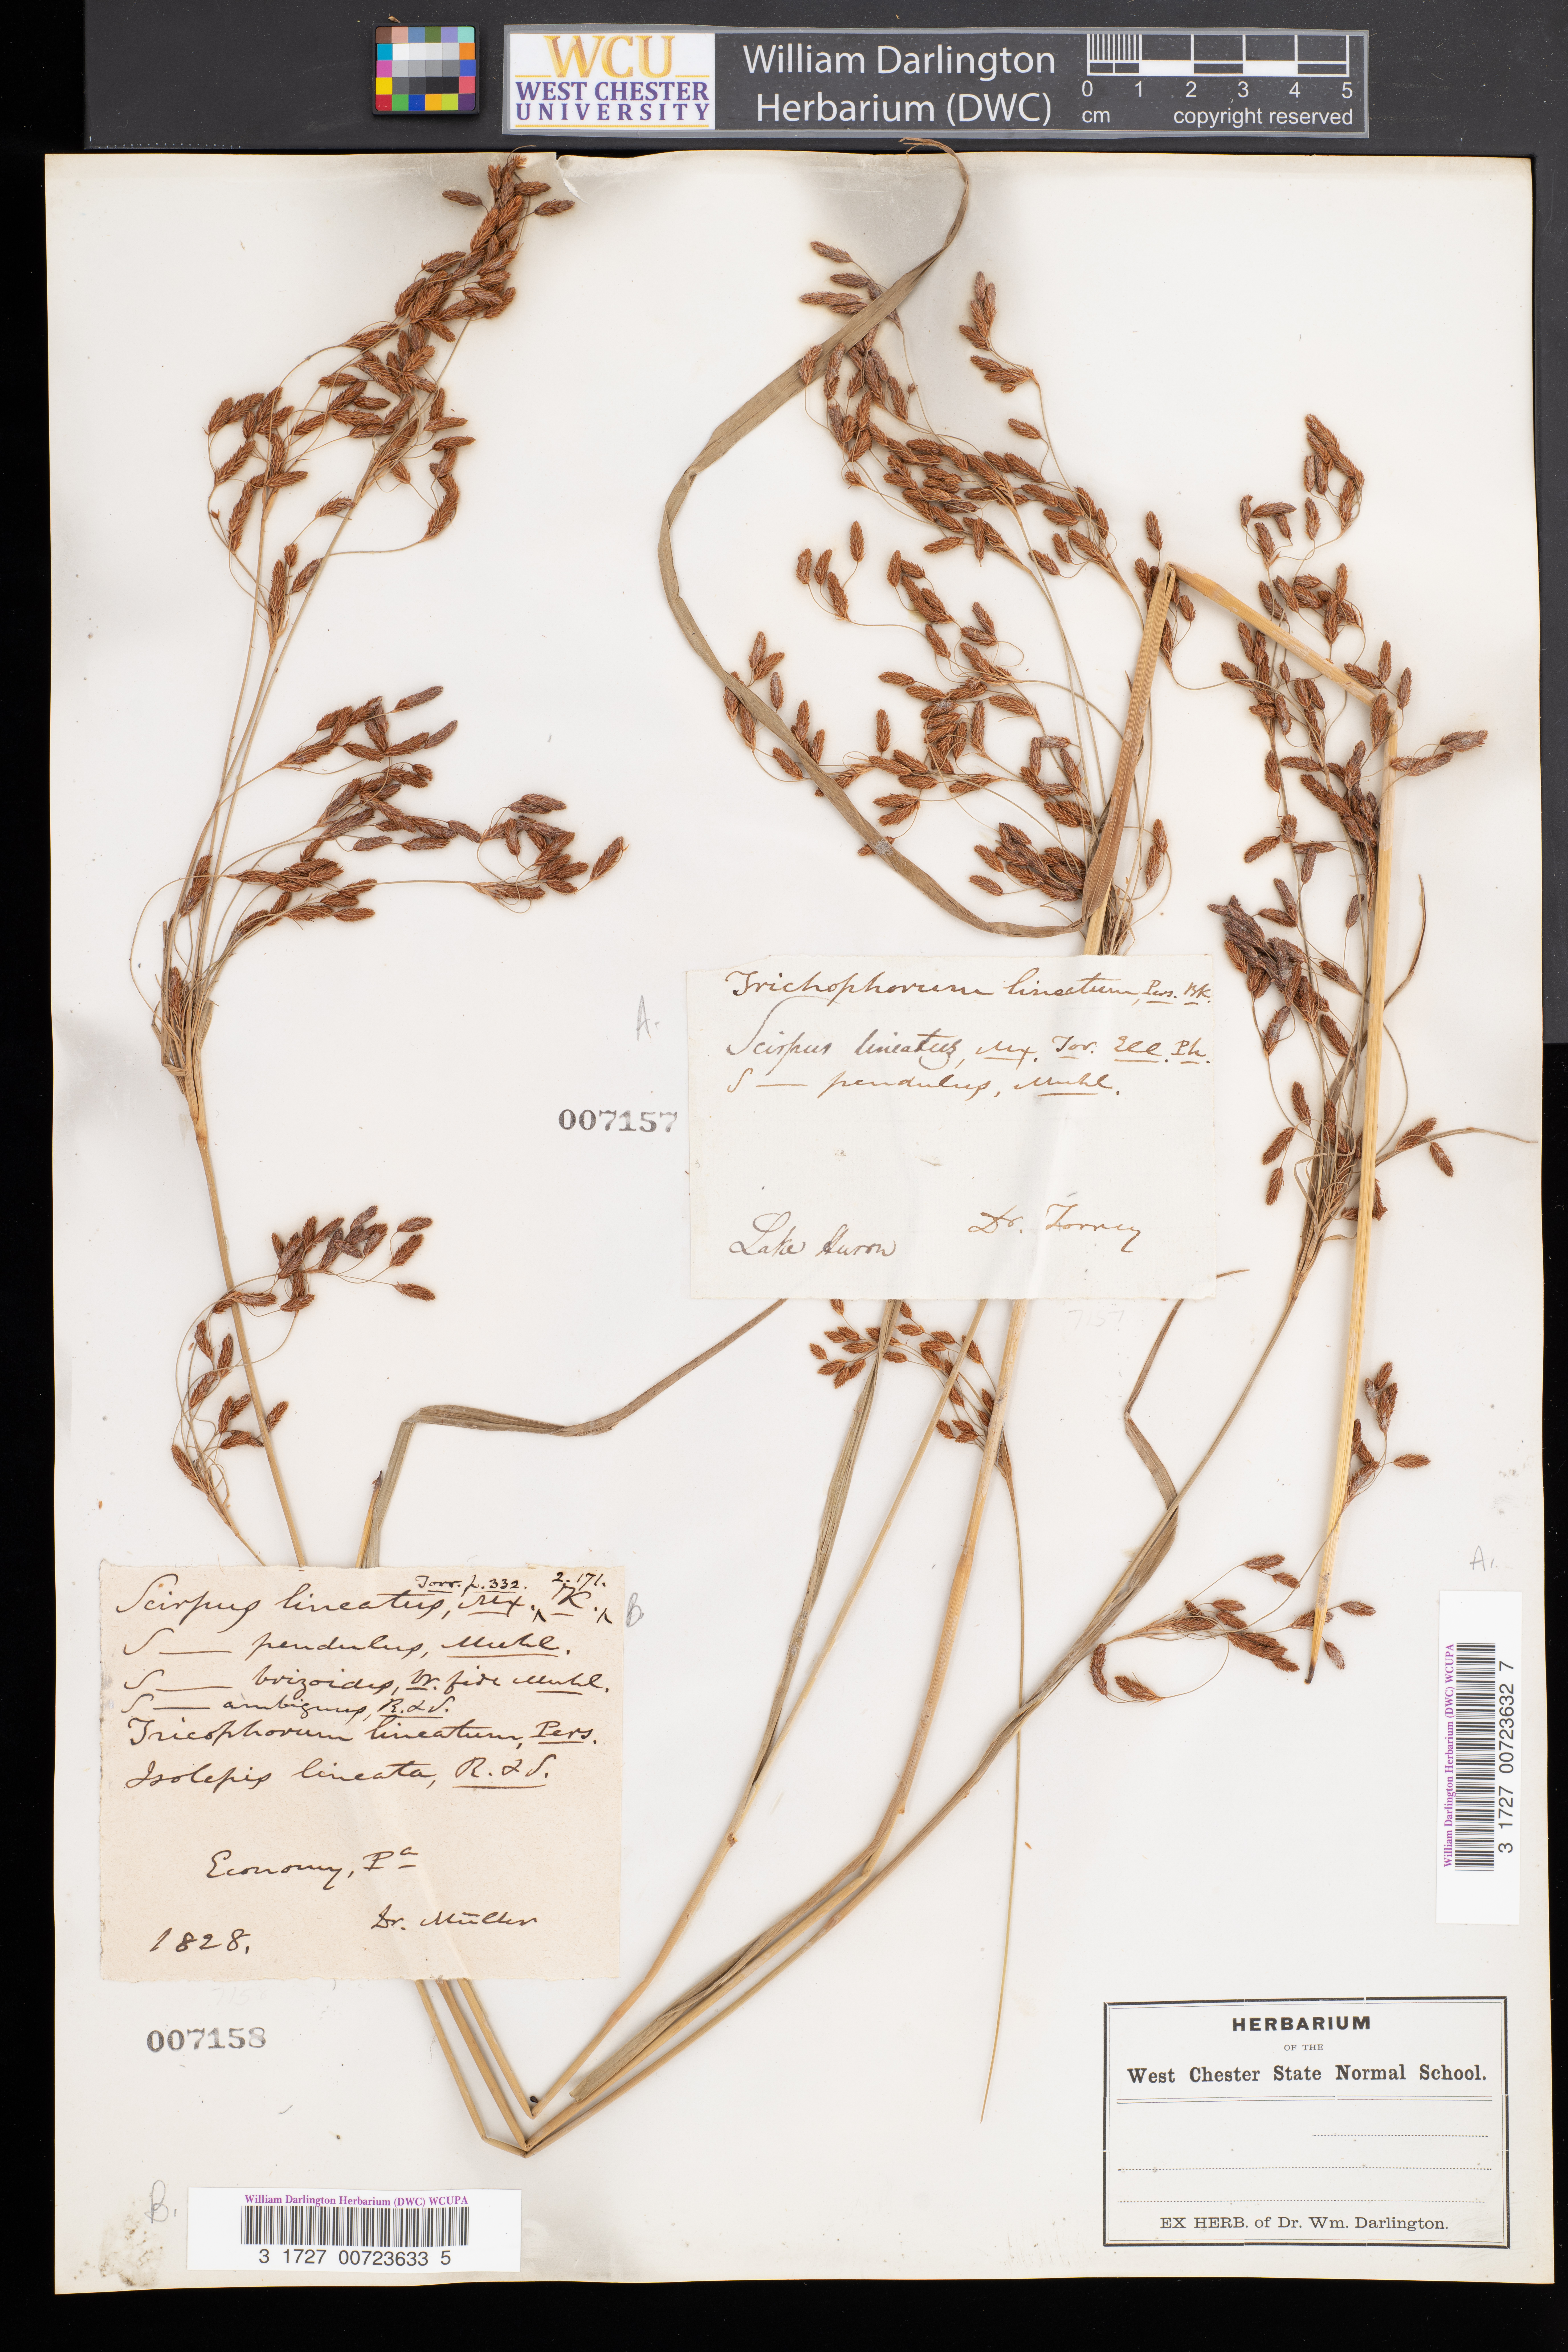 WCU
WEST CHESTER
UNIVERSITY
William Darlington
Herbarium (DWC)
0 1 2 3 4 5
cm copyright reserved
Trichophorum lineatum, Pers. Bk.
Scirpus lineatus, Mx. Tor. Ell. Ph.
S — pendulus, Muhl.
Lake Huron Dr. Torrey
A.
007157
7157
Torr. p. 332. 2. 171.
Scirpus lineatus, Mx. ^ K. ^
S — pendulus, Muhl.
S — brizoides, W. fide Muhl.
S — ambiguus, R. & S.
Tricophorum lineatum, Pers.
Isolepis lineata, R. & S.
Economy, Pa
1828. Dr. Müller
B
007158
B.
William Darlington Herbarium (DWC) WCUPA
3 1727 00723633 5
A.
William Darlington Herbarium (DWC) WCUPA
3 1727 00723632 7
HERBARIUM
OF THE
West Chester State Normal School.
EX HERB. of Dr. Wm. Darlington.